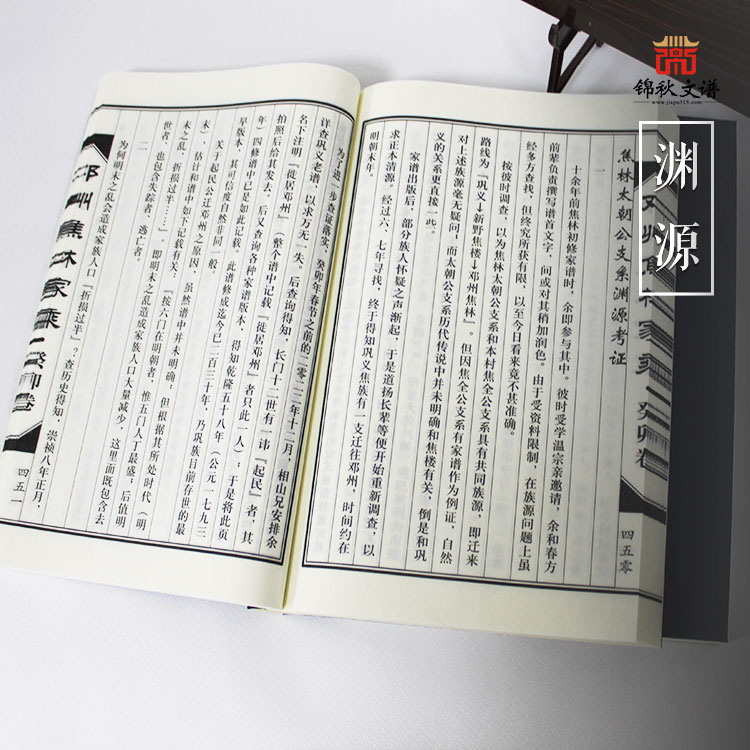 锦秋文谱
www.jiapu315.com
渊源
邓州焦林家乘—癸卯卷
四五零
焦林太朝公支系渊源考证
一
十余年前焦林初修家谱时，余即参与其中。彼时受学温宗亲邀请，余和春方
前辈负责撰写谱首文字，间或对其稍加润色。由于受资料限制，在族源问题上虽
经多方查找，但终究所获有限，以至今日看来竟不甚准确。
按彼时调查，以为焦林太朝公支系和本村焦全公支系具有共同族源，即迁来
路线为『巩义→新野焦楼→邓州焦林』。但因焦全公支系有家谱作为例证，自然
对上述族源毫无疑问；而太朝公支系历代传说中并未明确和焦楼有关，倒是和巩
义的关系更直接一些。
家谱出版后，部分族人怀疑之声渐起，于是道扬长辈等便开始重新调查，以
求正本清源。经过六、七年寻找，终于得知巩义焦族有一支迁往邓州，时间约在
明朝末年。
为了进一步查证落实，癸卯年春节之前的二零二二年十二月，相山兄安排余
详查巩义老谱，以求万无一失。后查询得知，长门十二世有一讳『起民』者，其
名下注明『徙居邓州』（整个谱中记载『徙居邓州』者只此一人）；于是将此页
拍照后给其发去。后又查询各种家谱版本，得知乾隆五十八年（公元一七九三
年）四修谱中已是如此记载。此谱修成迄今已二百三十年，乃巩族目前存世的最
早版本，其可信度自然非同一般。
关于起民公迁邓州之原因，虽然谱中并未明确；但根据其所处时代（明
末），估计和谱中如下记载有关：『按六门在明朝者，惟五门人丁最盛；后值明
末之乱，折损过半……』。即明末之乱造成家族人口大量减少，这里面既包含去
世者，也包含失踪者、逃亡者。
二
为何明末之乱会造成家族人口『折损过半』？查历史得知，崇祯八年正月，
邓州焦林家乘—癸卯卷
四五一